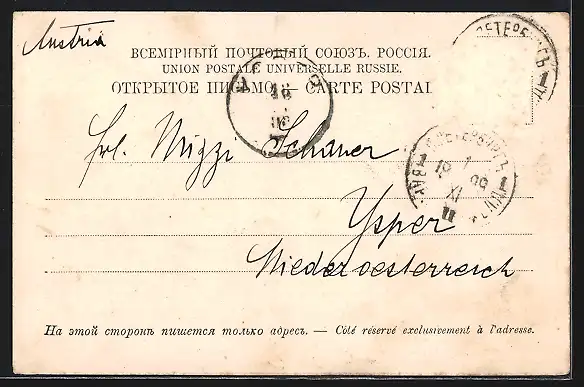 Austria
ВСЕМІРНЫЙ ПОЧТОВЫЙ СОЮЗЪ. РОССІЯ.
UNION POSTALE UNIVERSELLE RUSSIE.
ОТКРЫТОЕ ПИСЬМО. — CARTE POSTAL
Frl. Mizzi Schauer
Ysper
Niederoesterreich
На этой сторонѣ пишется только адресъ. — Côté réservé exclusivement à l'adresse.